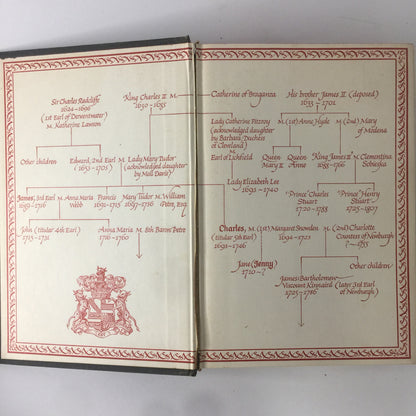 Sir Charles Radcliffe
1624 - 1696
(1st Earl of Derwentwater)
M. Katherine Lawson
King Charles II M.
1630 - 1685
Catherine of Braganza
His brother James II (deposed)
1633 - 1701
Lady Catherine Fitzroy
(acknowledged daughter
by Barbara Duchess
of Cleveland)
M.
Earl of Lichfield
M. (1st) Anne Hyde
M. (2nd) Mary
of Modena
Other children
Edward, 2nd Earl M.
1655 - 1705
Lady Mary Tudor
(acknowledged daughter
by Moll Davis)
Queen
Mary II
Queen
Anne
King James III M. Clementina
1688 - 1766
Sobieska
Lady Elizabeth Lee
1693 - 1740
James, 3rd Earl M. Anna Maria
1689 - 1716
Webb
Francis
1691 - 1715
Mary Tudor M. William
1697 - 1716
Petre, Esq.
"Prince" Charles
Stuart
1720 - 1788
"Prince" Henry
Stuart
1725 - 1807
John (titular 4th Earl)
1713 - 1731
Anna Maria M. 8th Baron Petre
1716 - 1760
Charles,
(titular 5th Earl)
1693 - 1746
M. (1st) Margaret Snowdon
1694 - 1721
M. (2nd) Charlotte
Countess of Newburgh
? - 1755
Jane (Jenny)
1710 - ?
Other children
James Bartholomew
Viscount Kinnaird (later 3rd Earl
1725 - 1786
of Newburgh)